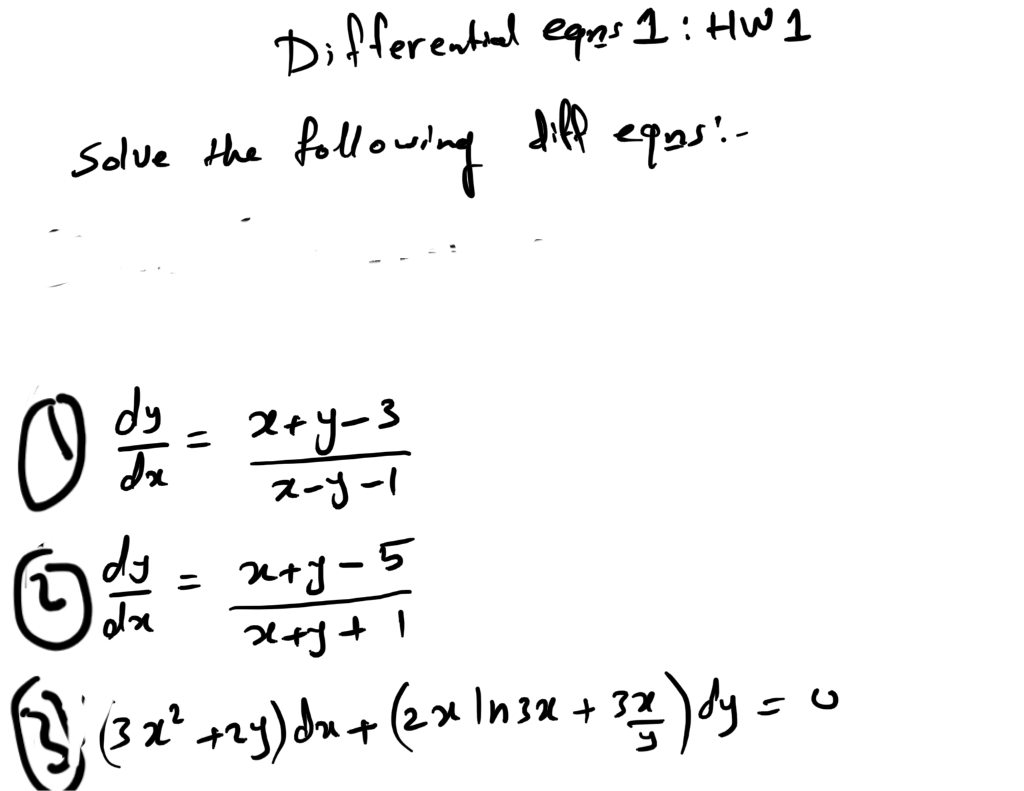 Differential eqns 1 : HW 1
Solve the following diff eqns :-
① dy/dx = (x+y-3)/(x-y-1)
② dy/dx = (x+y-5)/(x+y+1)
③ (3x²+2y)dx + (2x ln 3x + 3x/y)dy = 0